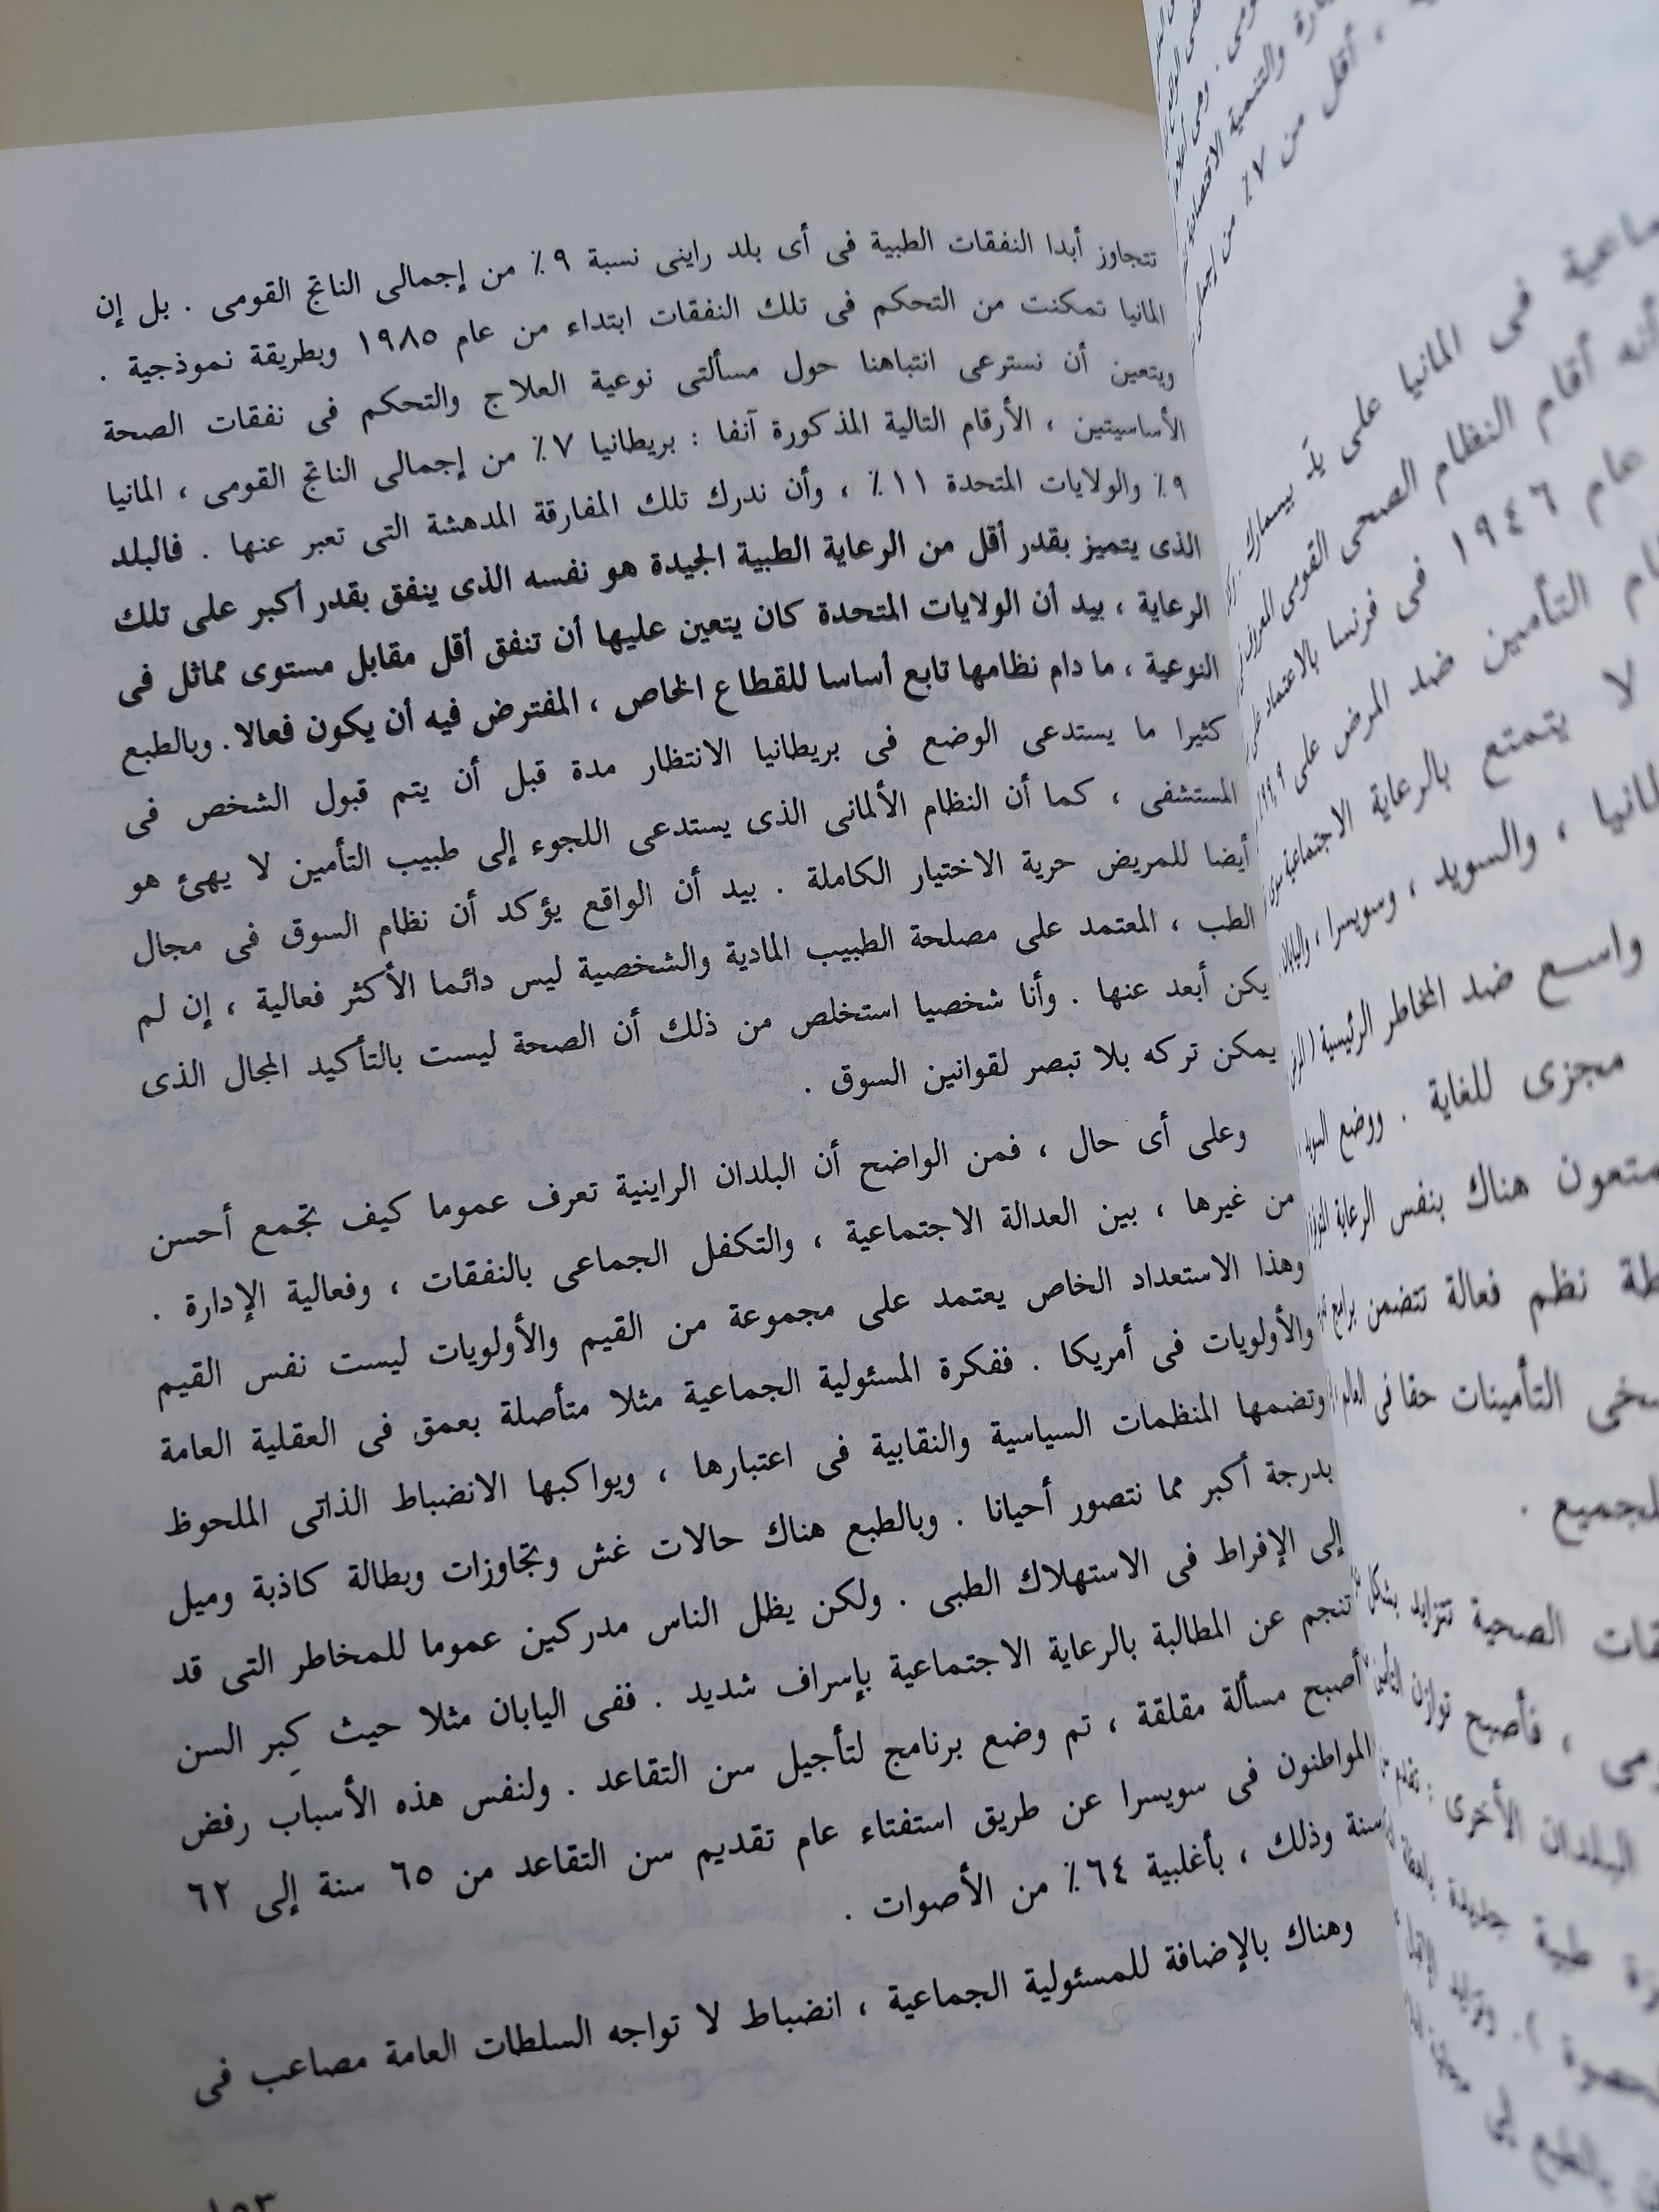 تتجاوز أبدا النفقات الطبية فى أى بلد راينى نسبة ٩٪ من إجمالى الناتج القومى . بل إن
المانيا تمكنت من التحكم فى تلك النفقات ابتداء من عام ١٩٨٥ وبطريقة نموذجية .
ويتعين أن نسترعى انتباهنا حول مسألتى نوعية العلاج والتحكم فى نفقات الصحة
الأساسيتين ، الأرقام التالية المذكورة آنفا : بريطانيا ٧٪ من إجمالى الناتج القومى ، المانيا
٩٪ والولايات المتحدة ١١٪ ، وأن ندرك تلك المفارقة المدهشة التى تعبر عنها . فالبلد
الذى يتميز بقدر أقل من الرعاية الطبية الجيدة هو نفسه الذى ينفق بقدر أكبر على تلك
الرعاية ، بيد أن الولايات المتحدة كان يتعين عليها أن تنفق أقل مقابل مستوى مماثل فى
النوعية ، ما دام نظامها تابع أساسا للقطاع الخاص ، المفترض فيه أن يكون فعالا . وبالطبع
كثيرا ما يستدعى الوضع فى بريطانيا الانتظار مدة قبل أن يتم قبول الشخص فى
المستشفى ، كما أن النظام الألمانى الذى يستدعى اللجوء إلى طبيب التأمين لا يهئ هو
أيضا للمريض حرية الاختيار الكاملة . بيد أن الواقع يؤكد أن نظام السوق فى مجال
الطب ، المعتمد على مصلحة الطبيب المادية والشخصية ليس دائما الأكثر فعالية ، إن لم
يكن أبعد عنها . وأنا شخصيا استخلص من ذلك أن الصحة ليست بالتأكيد المجال الذى
يمكن تركه بلا تبصر لقوانين السوق .
وعلى أى حال ، فمن الواضح أن البلدان الراينية تعرف عموما كيف تجمع أحسن
من غيرها ، بين العدالة الاجتماعية ، والتكفل الجماعى بالنفقات ، وفعالية الإدارة .
وهذا الاستعداد الخاص يعتمد على مجموعة من القيم والأولويات ليست نفس القيم
والأولويات فى أمريكا . ففكرة المسئولية الجماعية مثلا متأصلة بعمق فى العقلية العامة
وتضمها المنظمات السياسية والنقابية فى اعتبارها ، ويواكبها الانضباط الذاتى الملحوظ
بدرجة أكبر مما نتصور أحيانا . وبالطبع هناك حالات غش وتجاوزات وبطالة كاذبة وميل
إلى الإفراط فى الاستهلاك الطبى . ولكن يظل الناس مدركين عموما للمخاطر التى قد
تنجم عن المطالبة بالرعاية الاجتماعية بإسراف شديد . ففى اليابان مثلا حيث كِبر السن
أصبح مسألة مقلقة ، تم وضع برنامج لتأجيل سن التقاعد . ولنفس هذه الأسباب رفض
المواطنون فى سويسرا عن طريق استفتاء عام تقديم سن التقاعد من ٦٥ سنة إلى ٦٢
سنة وذلك ، بأغلبية ٦٤٪ من الأصوات .
وهناك بالإضافة للمسئولية الجماعية ، انضباط لا تواجه السلطات العامة مصاعب فى
والتنمية
أقل من ٧٪ من
فى المانيا على يد بيسمارك
أقام النظام الصحى القومى
عام ١٩٤٦ فى فرنسا بالاعتماد
التأمين ضد المرض على
لا يتمتع بالرعاية الاجتماعية سوى
، والسويد ، وسويسرا ،
واسع ضد المخاطر الرئيسية
مجزى للغاية . ووضع
هناك بنفس الرعاية
نظم فعالة تتضمن برامج
التأمينات حقا فى العالم
الصحية تتزايد بشكل
، فأصبح توازن
البلدان الأخرى
طبية جديدة